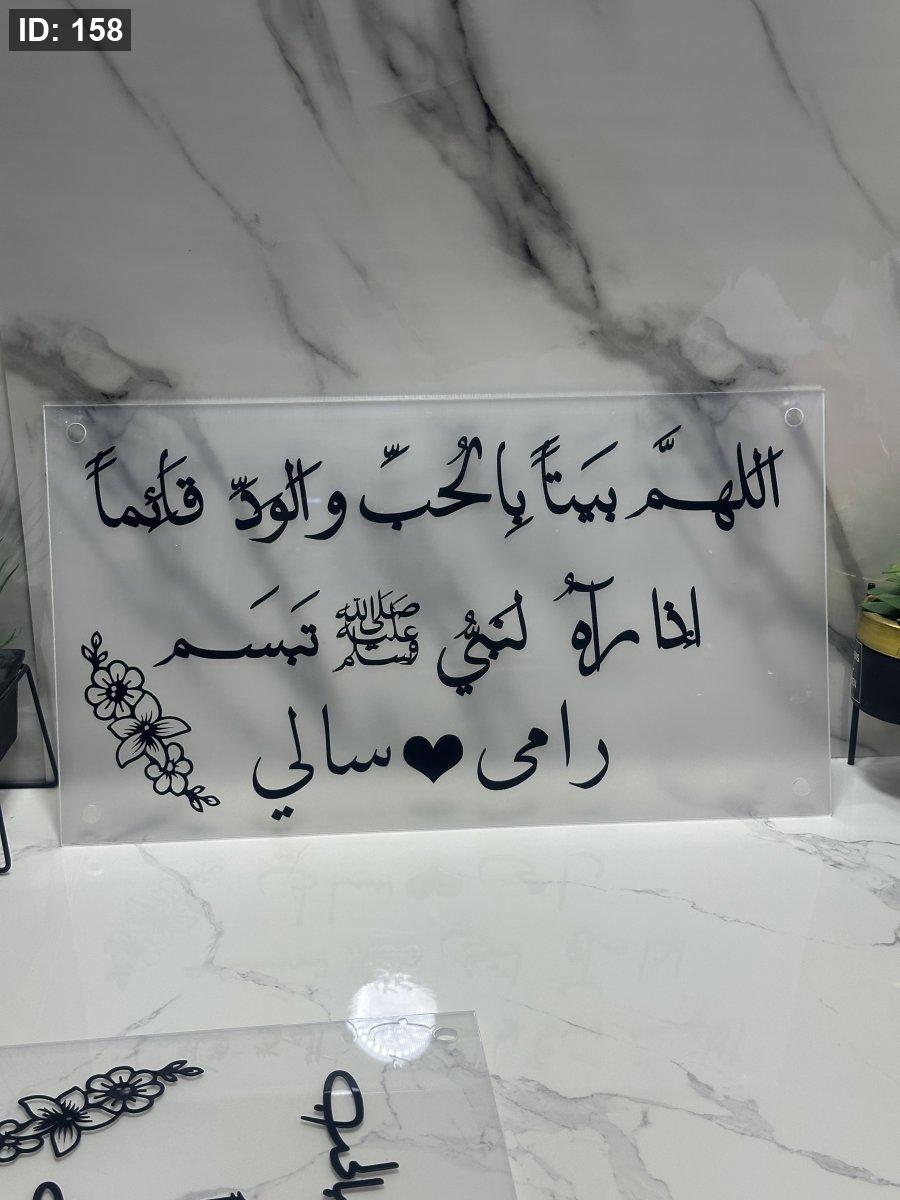 ID: 158
اللهمَّ بَيتاً بِالحُبِّ والودِّ قَائِماً
اذا رآهُ لنَبيُّ ﷺ تَبَسَم
رامى ♥ سالي